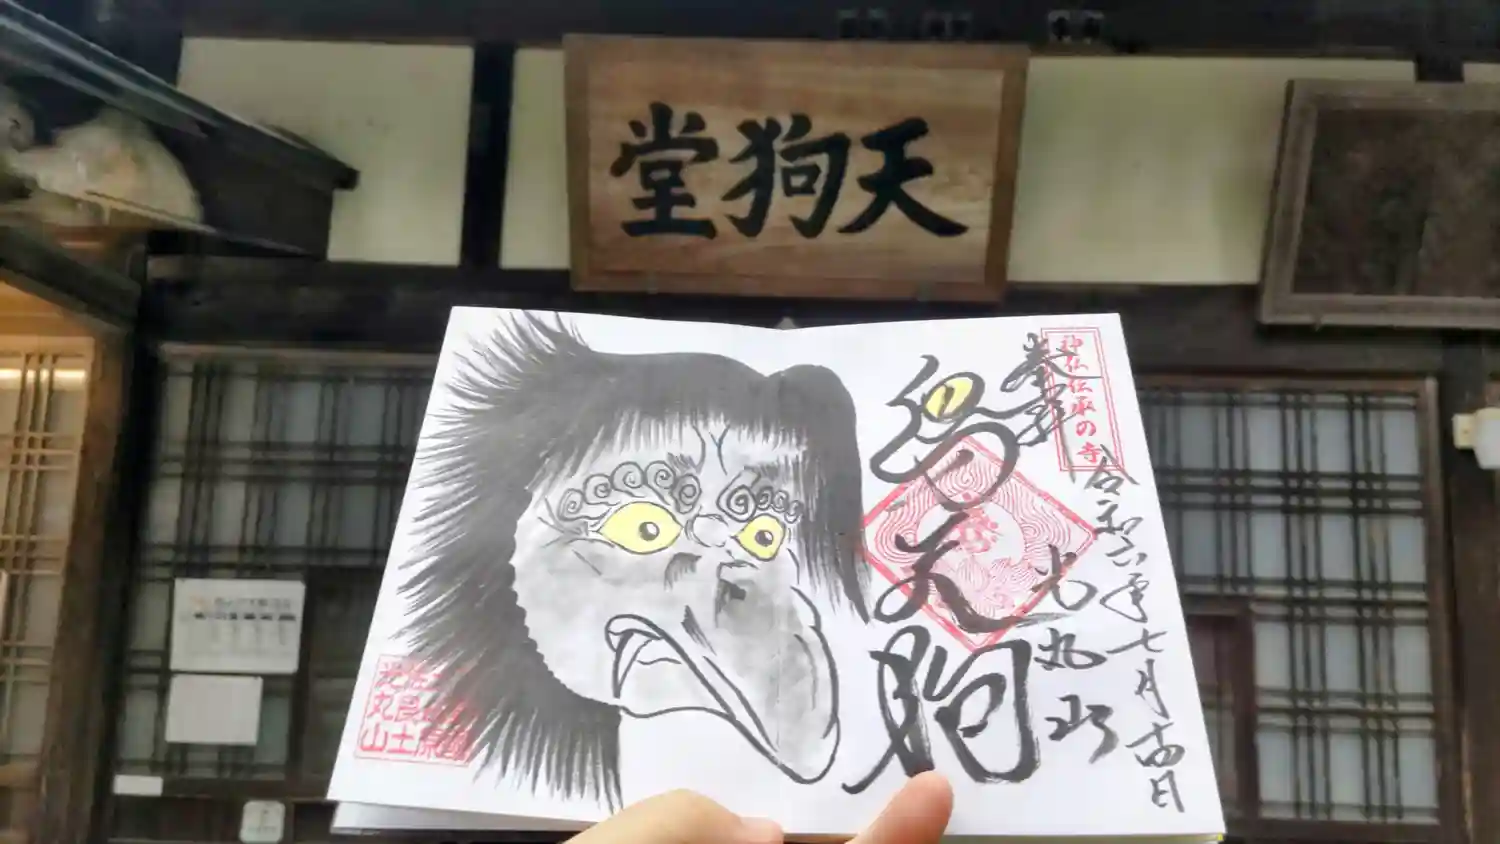 天狗堂
神仏伝承の寺
奉拝
令和六年七月十四日
光丸山
烏天狗
佐良土
光丸山